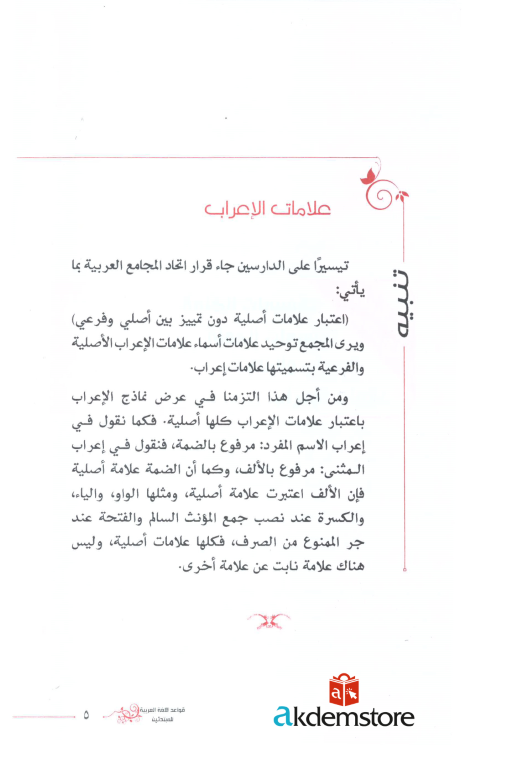 علامات الإعراب
تنبيه
تيسيرًا على الدارسين جاء قرار اتحاد المجامع العربية بما
يأتي:
(اعتبار علامات أصلية دون تمييز بين أصلي وفرعي)
ويرى المجمع توحيد علامات أسماء علامات الإعراب الأصلية
والفرعية بتسميتها علامات إعراب.
ومن أجل هذا التزمنا في عرض نماذج الإعراب
باعتبار علامات الإعراب كلها أصلية. فكما نقول في
إعراب الاسم المفرد: مرفوع بالضمة، فنقول في إعراب
المثنى: مرفوع بالألف، وكما أن الضمة علامة أصلية
فإن الألف اعتبرت علامة أصلية، ومثلها الواو، والياء،
والكسرة عند نصب جمع المؤنث السالم والفتحة عند
جر الممنوع من الصرف، فكلها علامات أصلية، وليس
هناك علامة نابت عن علامة أخرى.
قواعد اللغة العربية
للمبتدئين
٥
a
akdemstore